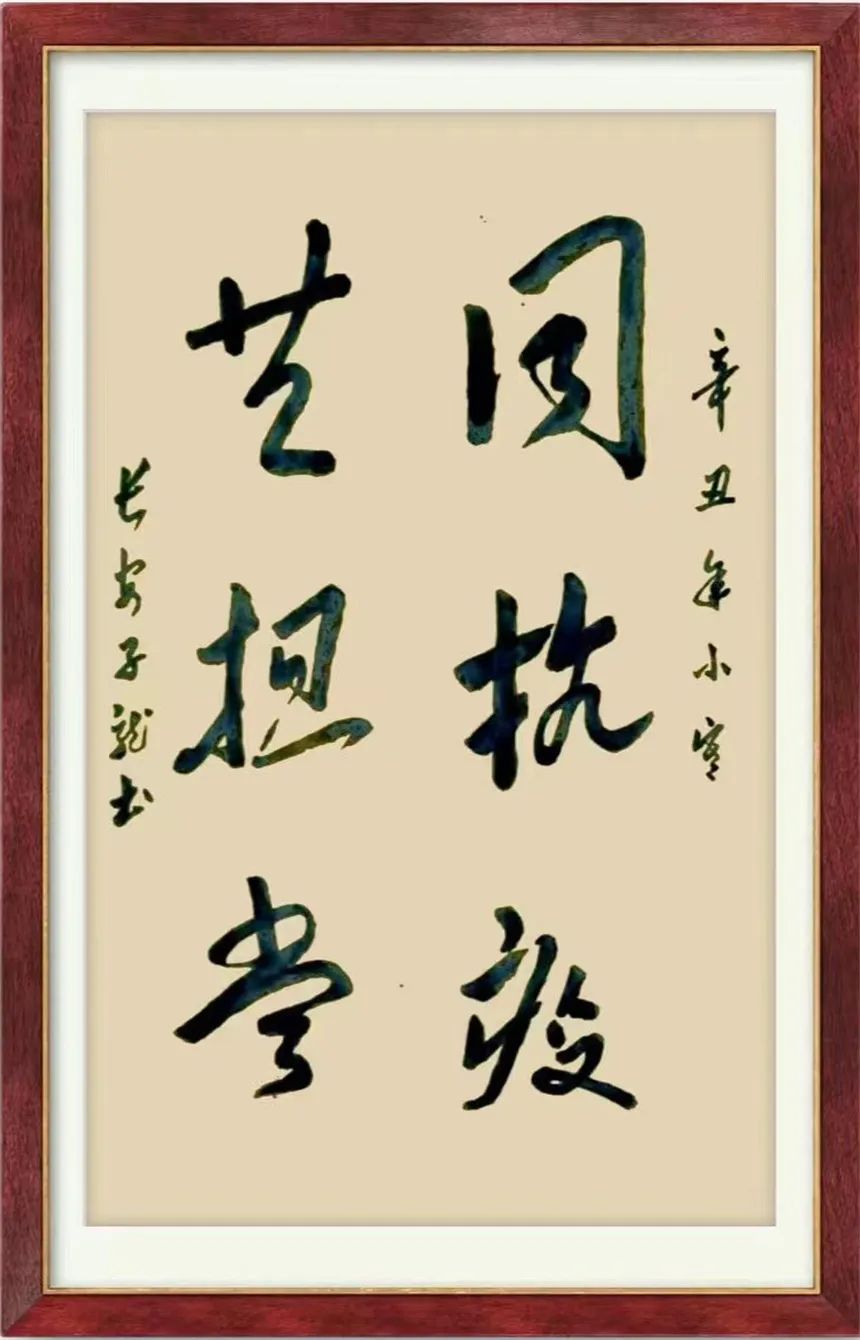 辛丑年小寒
同抗疫
共担当
长安子龙书